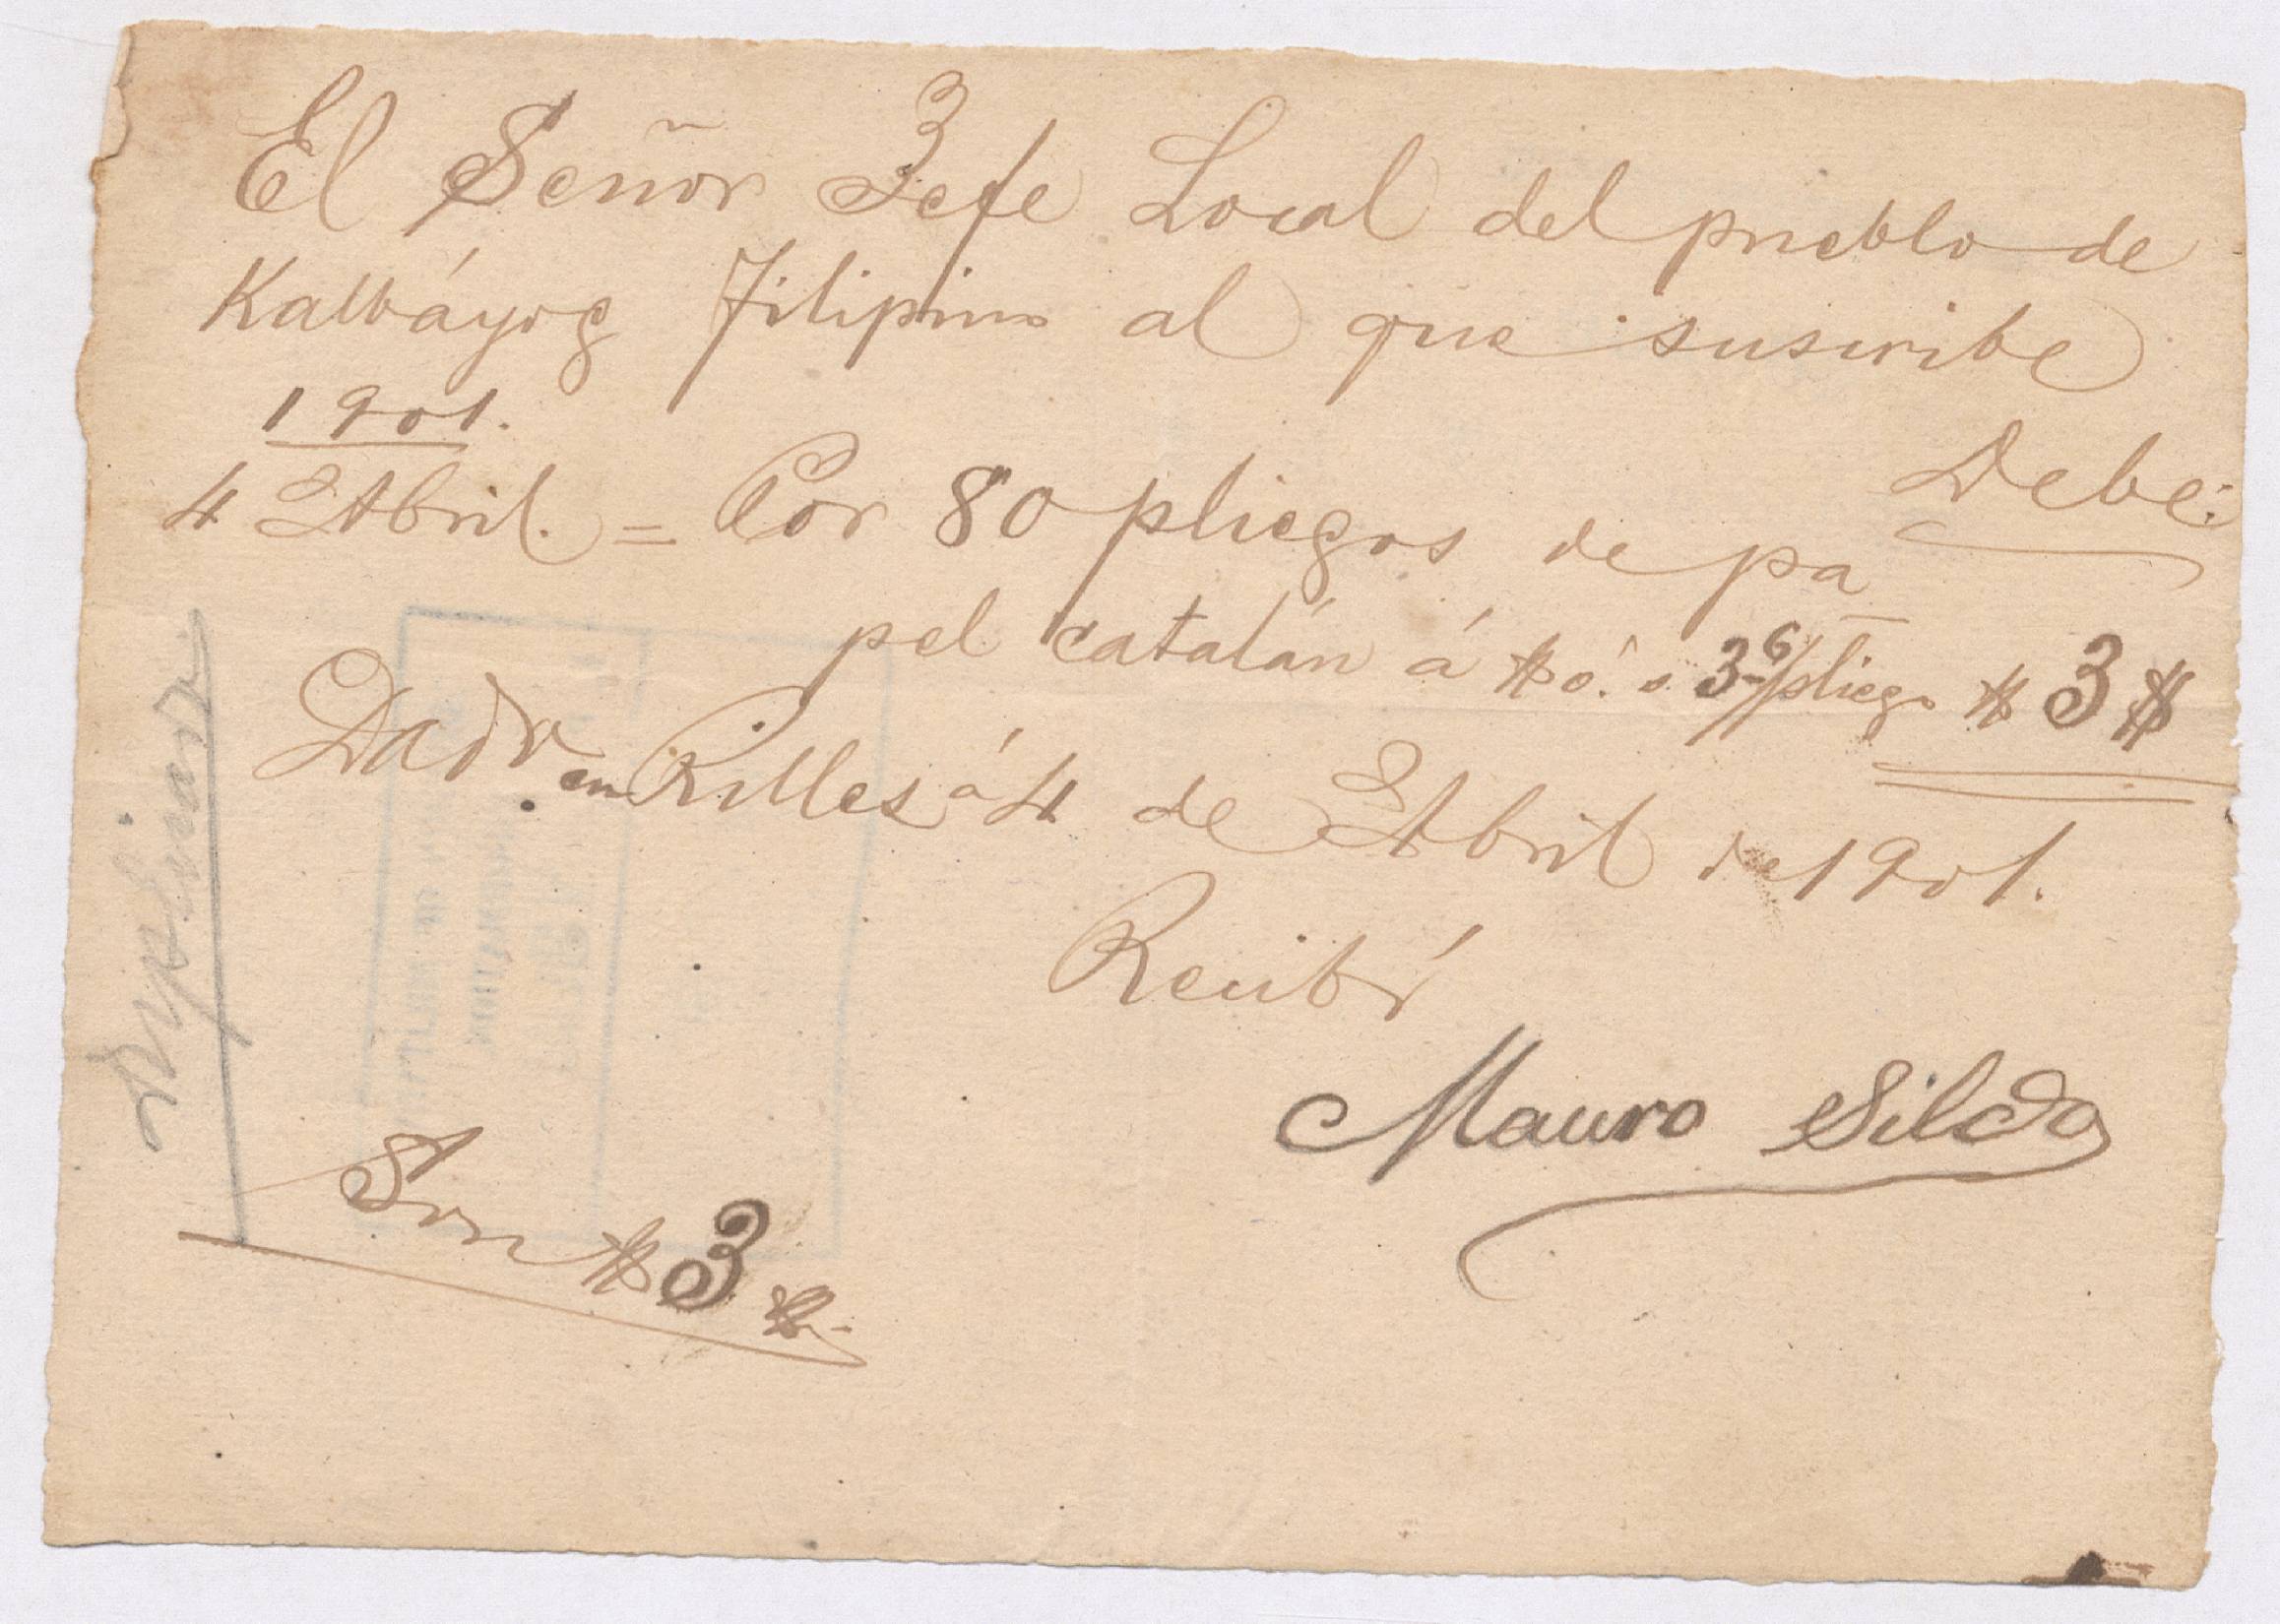 El Señor Jefe Local del pueblo de
Kalbáyog Filipino al que suscribe
1901.
Debe:
4 Abril. = Por 80 pliegos de pa
pel catalán á $ 0. 0. 3 6/ pliego $ 3 $
Dado en á 4 de Abril de 1901.
Recibí
Mauro Sildo
Son $ 3 $